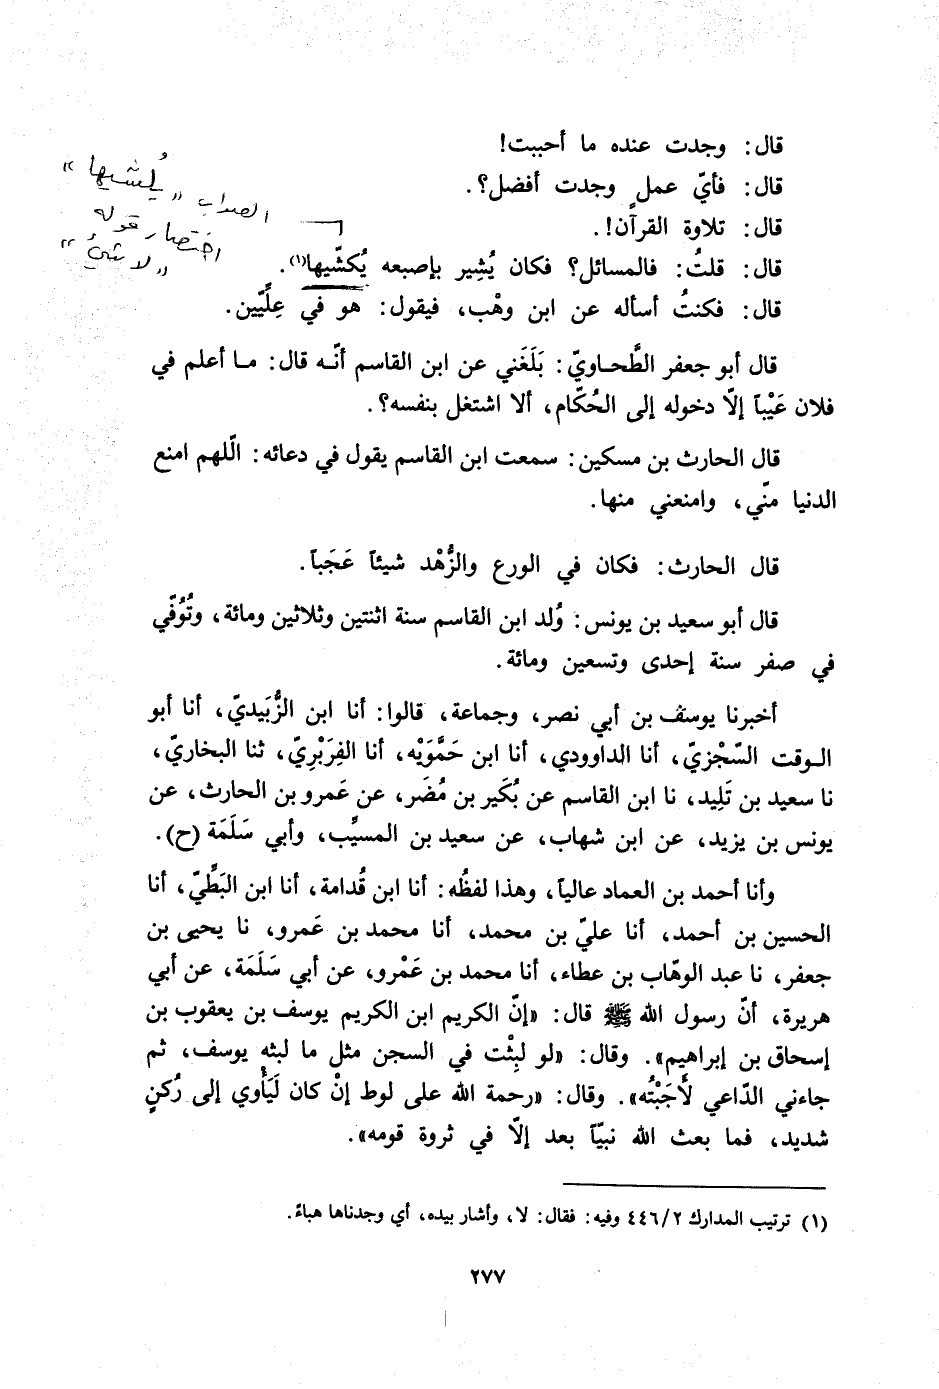 قال: وجدت عنده ما أحببت!
قال: فأيّ عملٍ وجدت أفضل؟.
قال: تلاوة القرآن!.
قال: قلتُ: فالمسائل؟ فكان يُشِير بإصبعه يُكشّيها(١).
قال: فكنتُ أسأله عن ابن وهْب، فيقول: هو في عِلِّيّين.
الصواب «يُلشيها»
اختصار قوله
«لا شيءُ»
قال أبو جعفر الطَّحاويّ: بَلَغَني عن ابن القاسم أنّه قال: ما أعلم في
فلان عَيْباً إلّا دخوله إلى الحُكّام، ألا اشتغل بنفسه؟.
قال الحارث بن مسكين: سمعت ابن القاسم يقول في دعائه: الّلهم امنع
الدنيا منّي، وامنعني منها.
قال الحارث: فكان في الورع والزُّهْد شيئاً عَجَباً.
قال أبو سعيد بن يونس: وُلد ابن القاسم سنة اثنتين وثلاثين ومائة، وتُوُفّي
في صفر سنة إحدى وتسعين ومائة.
أخبرنا يوسف بن أبي نصر، وجماعة، قالوا: أنا ابن الزُّبَيديّ، أنا أبو
الوقت السّجْزيّ، أنا الداوودي، أنا ابن حَمَّوَيْه، أنا الفِرَبْرِيّ، ثنا البخاريّ،
نا سعيد بن تَلِيد، نا ابن القاسم عن بُكَير بن مُضَر، عن عَمرو بن الحارث، عن
يونس بن يزيد، عن ابن شهاب، عن سعيد بن المسيِّب، وأبي سَلَمَة (ح).
وأنا أحمد بن العماد عالياً، وهذا لفظُه: أنا ابن قُدامة، أنا ابن البَطِّيّ، أنا
الحسين بن أحمد، أنا عليّ بن محمد، أنا محمد بن عَمرو، نا يحيى بن
جعفر، نا عبد الوهّاب بن عطاء، أنا محمد بن عَمْرو، عن أبي سَلَمَة، عن أبي
هريرة، أنّ رسول الله ﷺ قال: «إنّ الكريم ابن الكريم يوسف بن يعقوب بن
إسحاق بن إبراهيم». وقال: «لو لبِثْت في السجن مثل ما لبثه يوسف، ثم
جاءني الدّاعي لَأَجَبْتُه». وقال: «رحمة الله على لوط إنْ كان لَيَأْوي إلى رُكنٍ
شديد، فما بعث الله نبيّاً بعد إلّا في ثروة قومه».
(١) ترتيب المدارك ٤٤٦/٢ وفيه: فقال: لا، وأشار بيده، أي وجدناها هباءً.
٢٧٧